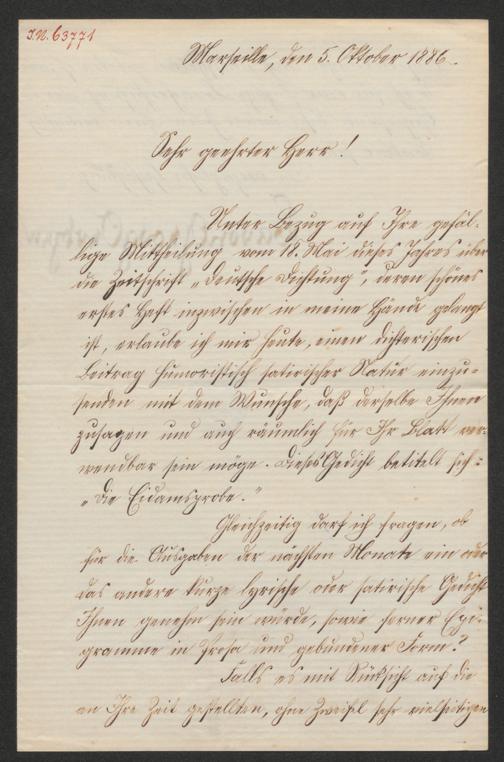 I.N. 63771
Marseille, den 5. Oktober 1886.
Sehr geehrter Herr!
Unter Bezug auf Ihre gefäl-
lige Mittheilung vom 18. Mai dieses Jahres über
die Zeitschrift „Deutsche Dichtung“, deren schönes
erstes Heft inzwischen in meine Hände gelangt
ist, erlaube ich mir heute, einen dichterischen
Beitrag humoristisch satirischer Natur einzu-
senden mit dem Wunsche, daß derselbe Ihnen
zusagen und auch räumlich für Ihr Blatt ver-
wendbar sein möge. Dieses Gedicht betitelt sich:
„Die Eidamsprobe.“
Gleichzeitig darf ich fragen, ob
für die Ausgaben der nächsten Monate ein oder
das andere kurze lyrische oder satirische Gedicht
Ihnen genehm sein würde, sowie ferner Epi-
gramme in Prosa und gebundener Form?
Falls es mit Rücksicht auf die
an Ihre Zeit gestellten, ohne Zweifel sehr vielseitigen